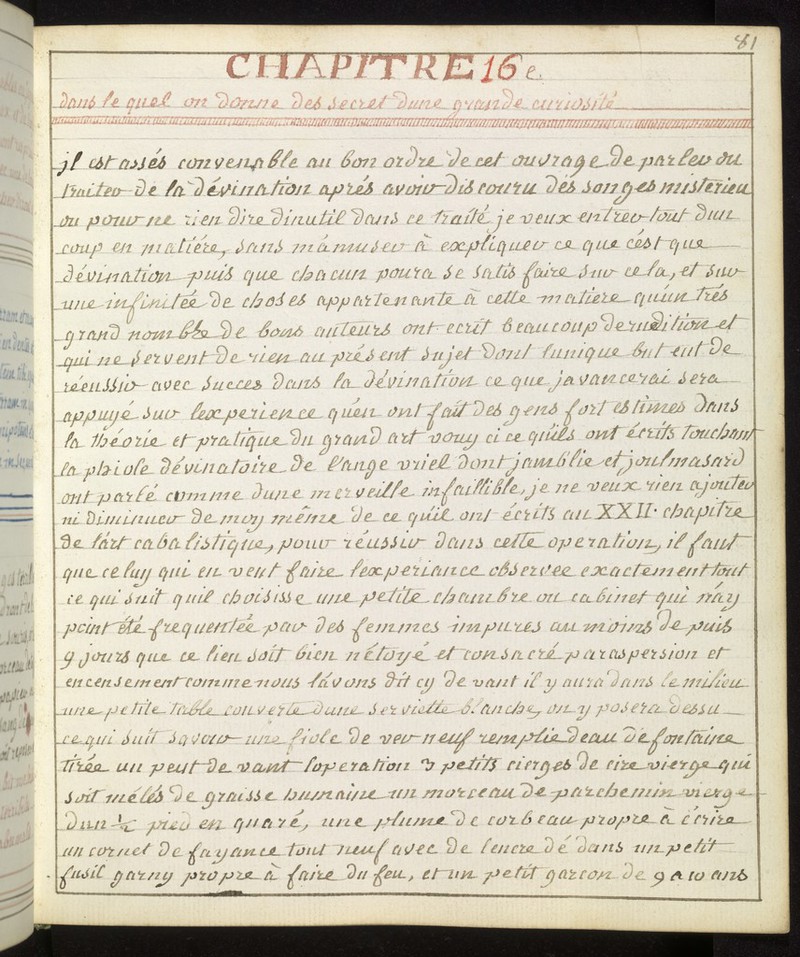 81
CHAPITRE 16e.
dans le quel on donne des secret dune grande curiosité
jl est assés convenable au bon ordre de cet ouvrage de parler ou
traiter de la dévination aprés avoir discouru des songes misterieu
ou pour ne rien dire dinutil dans ce traité je veux entrer tout dun
coup en matiére, sans mámuser à expliquer ce que cést que
dévination puis que chacun poura se satis faire sur cela, et sur
une infinitée de choses appartenante à cette matiere quún trés
grand nombre de bons auteurs ont ecrit beaucoup derudition et
qui ne servent de rien au présent sujet dont lunique but eut de
réeussir avec succes dans la dévination ce que javancerai sera
appuyé sur lexperience quén ont fait des gens fort estimes dans
la théorie et pratique du grand art vouy ci ce quils ont écrits touchant
la phiole dévinatoire de l'ange vriel dont jamblie et joulmasard
ont parlé comme dune merveille infaillible, je ne veux rien ajouter
ni diminuer de moy même de ce quil ont écrits au XXII. chapitre
de lárt cabalistique, pour réussir dans cette operation, il faut
que celuy qui en veut faire lexperiance observee exactement tout
ce qui suit quil choisisse une petite chambre ou cabinet qui náy
point été frequentée par des femmes impures au moins de puis
9 jours que ce lieu soit bien nétoyé et consacré par aspersion et
encensement comme nous lávons dit cy de vant il y aura dans le milieu
une petite table couverte dune serviette blanche, on y posera dessu
ce qui suit sçavoir une fiole de ver neuf remplie deau de fontaine
tirée un peut de vant loperation 3 petits cierges de cire vierge qui
soit mélés de graisse humaine un morceau de parchemin vierge
dun ½ pied en quaré, une plume de corbeau propre à écrire
un cornet de fayance tout neuf avec de lencre de dans un petit
fusil garny propre à faire du feu, et un petit garcon de 9 a 10 ans